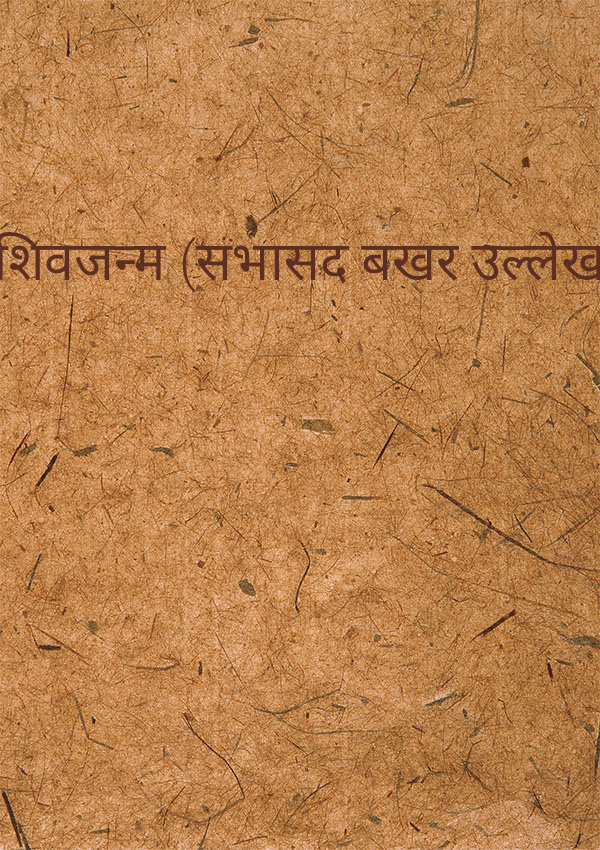 शिवजन्म (सभासद बखर उल्लेख